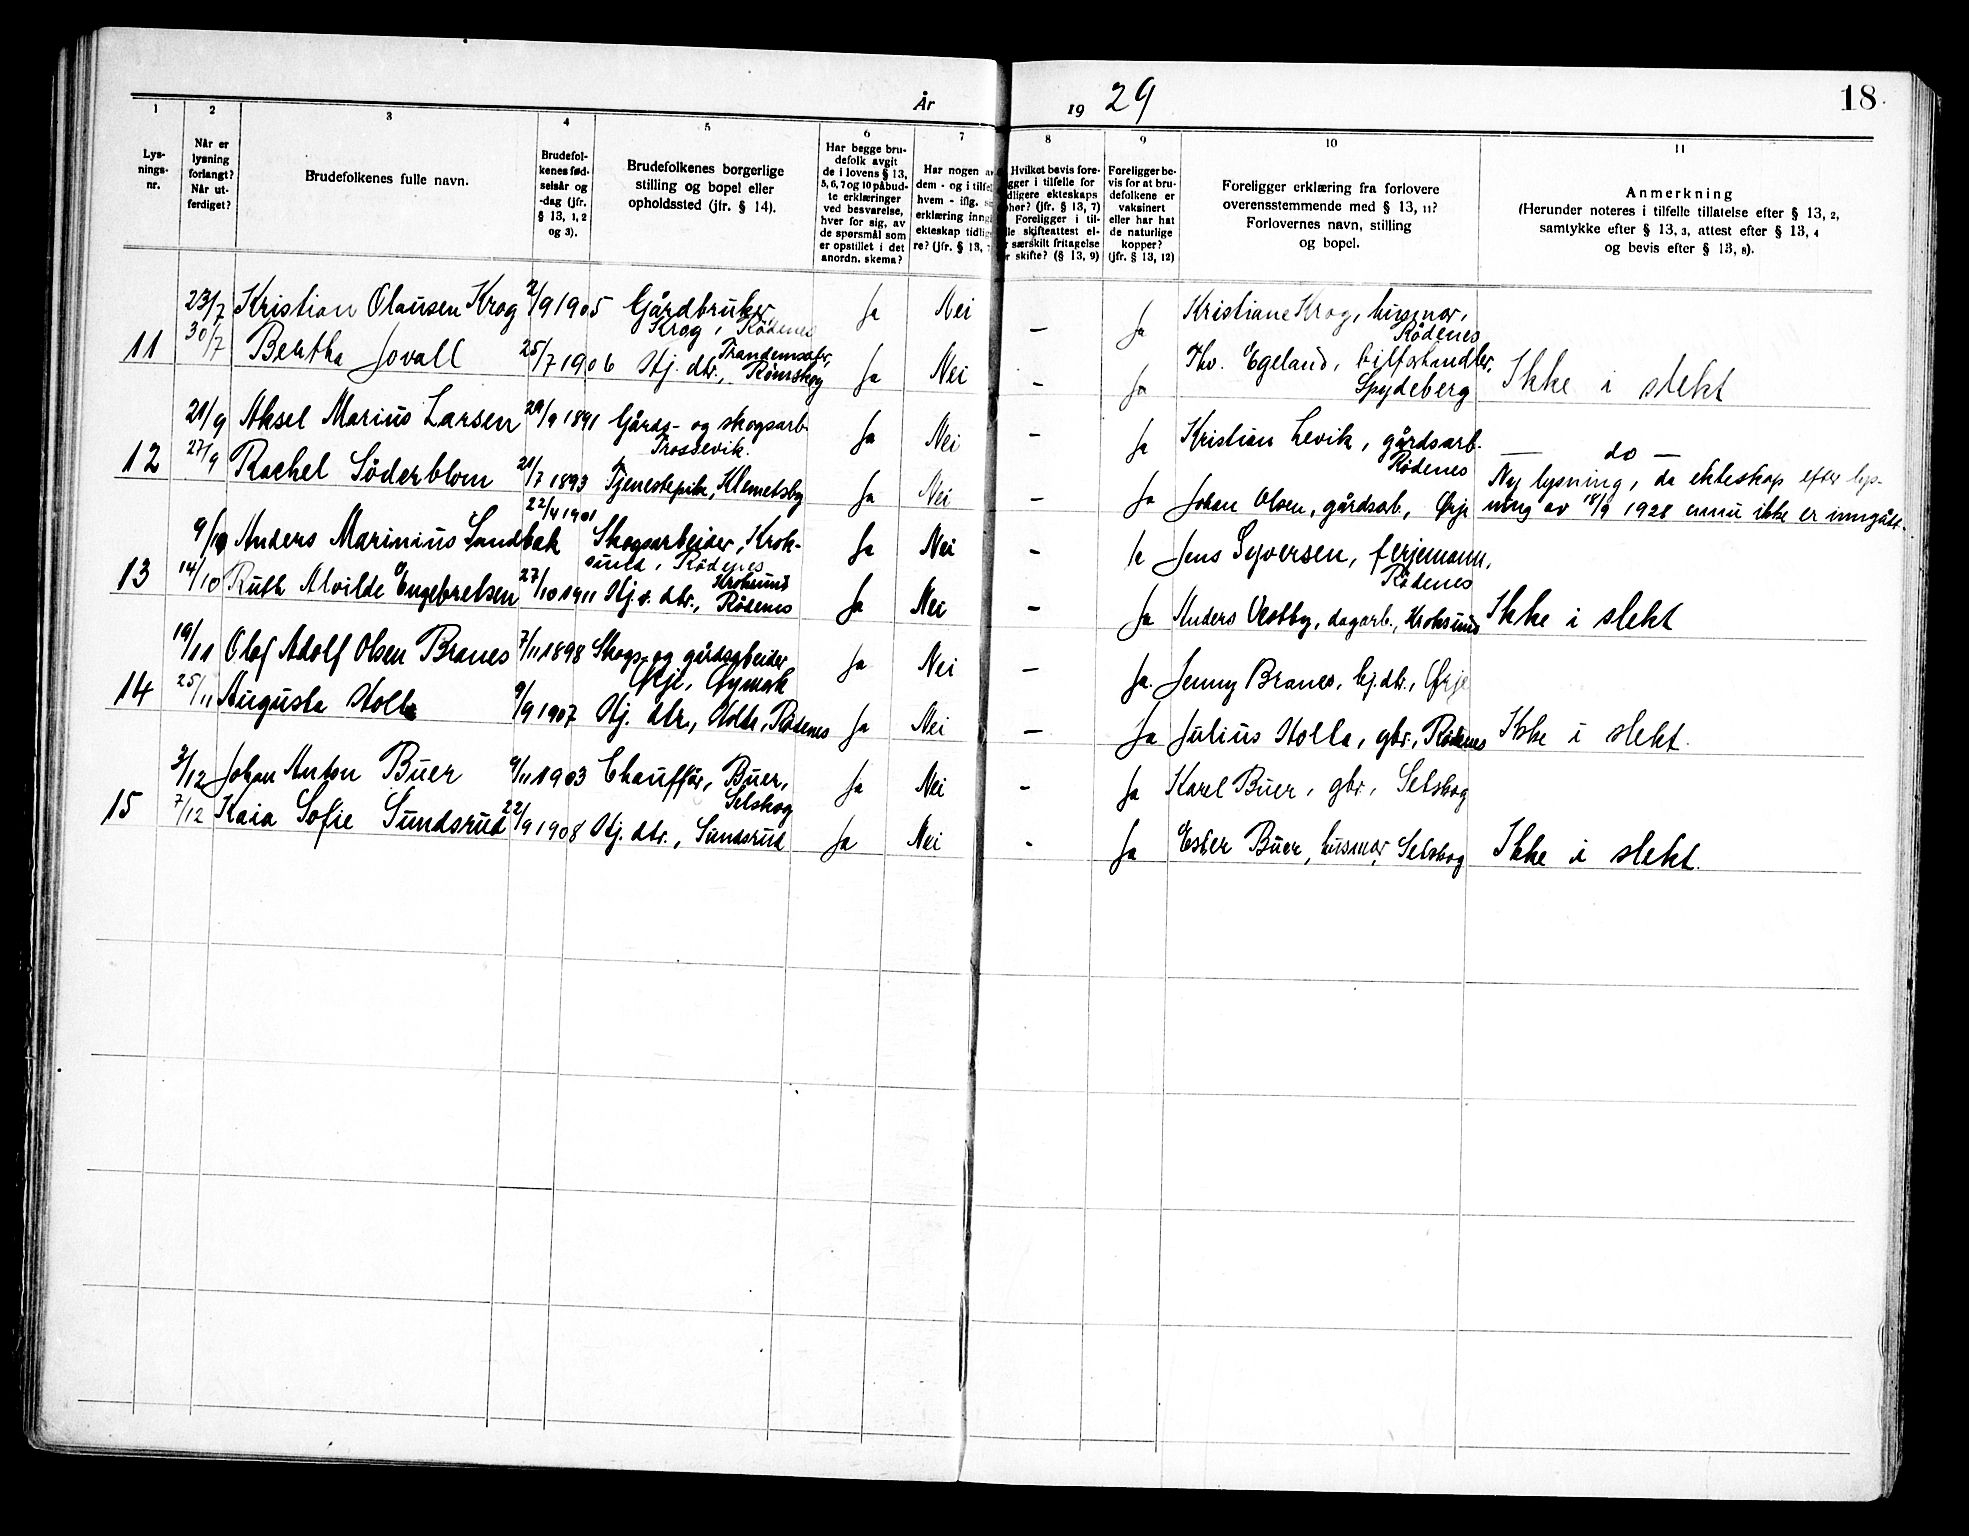 År 1929
18
1
2
3
4
5
6
7
8
9
10
11
Lys-
nings-
nr.
Når er
lysning
forlangt?
Når ut-
ferdiget?
Brudefolkenes fulle navn.
Brudefol-
kenes fød-
selsår og
-dag (jfr.
§ 13, 1, 2
og 3).
Brudefolkenes borgerlige
stilling og bopel eller
opholdssted (jfr. § 14).
Har begge bru-
defolk avgit
de i lovens § 13,
5, 6, 7 og 10 påbud-
te erklæringer
ved besvarelse,
hver for sig, av
de spørsmål som
er opstillet i det
anordn. skema?
Har nogen a
dem - og i tilfel
hvem - iflg. s
erklæring inng
ekteskap tidlig
re? (jfr. § 13,
Hvilket bevis fore-
gger i tilfelle for
dligere ekteskaps
phør? (jfr. § 13, 7)
Foreligger i til-
lle skifteattest el-
r særskilt fritagelse
r skifte? (§ 13, 9)
Foreligger be-
vis for at bru-
defolkene er
vaksinert
eller har hat
de naturlige
kopper?
(jfr. § 13, 12)
Foreligger erklæring fra forlovere
overensstemmende med § 13, 11?
Forlovernes navn, stilling
og bopel.
Anmerkning
(Herunder noteres i tilfelle tillatelse efter § 13, 2,
samtykke efter § 13, 3, attest efter § 13, 4
og bevis efter § 13, 8).
23/7 Kristian Olausen Krog 2/9 1905 Gårdbruker Ja Nei — Ja Kristiane Krog, husmor,
Krog, Rödenes Rödenes
11 30/7 Bertha Jovall 25/7 1906 Hj. dtr., Trandemsæter, Ja Nei — Ja Thv. Egeland, bilforhandler, Ikke i slekt
Römskog Spydeberg
21/9 Aksel Marius Larsen 29/9 1891 Gårds- og skogsarb. Ja Nei — Ja Kristian Levik, gårdsarb. — do —
Trossevik. Rödenes
12 27/9 Rachel Söderblom 21/7 1893 Tjenestepike, Klemetsby Ja Nei — Ja Johan Olsen, gårdsarb., Ørje Ny lysning, da ekteskap efter lys-
ning av 18/9 1928 ennu ikke er inngått.
9/10 Anders Marinius Sandbæk 22/4 1901 Skogsarbeider, Krok- Ja Nei — Ja Jens Syversen, ferjemann,
sund, Rödenes Rödenes
13 14/10 Ruth Alvilde Engebretsen 27/10 1911 Hj.v. dtr., Kroksund Ja Nei — Ja Anders Vestby, dagarb., Kroksund Ikke i slekt
Rödenes
19/11 Olaf Adolf Olsen Branes 7/11 1898 Skogs- og gårdsarbeider Ja Nei — Ja. Jenny Branes, hj.dtr., Ørje
Ørje, Øymark
14 25/11 Augusta Holla 9/9 1907 Hj. dtr., Holla, Rödenes Ja Nei — Ja Julius Holla, gbr., Rödenes Ikke i slekt.
3/12 Johan Anton Buer 9/11 1903 Chauffür, Buer, Ja Nei - Ja Karel Buer, gbr., Setskog
Setskog
15 7/12 Kaia Sofie Sundsrud 22/9 1908 Hj. dtr., Sundsrud Ja Nei - Ja Ester Buer, husmor, Setskog Ikke i slekt.